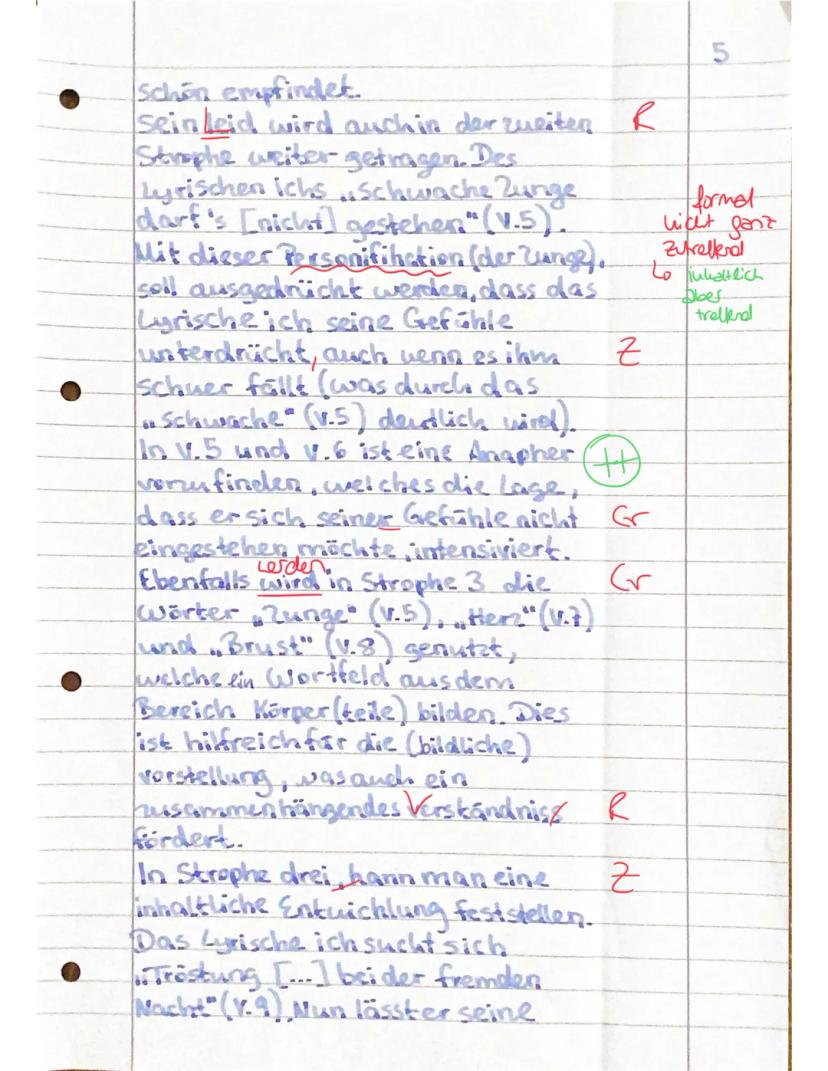 5
schön empfindet.
Sein Leid wird auch in der zweiten R
Strophe weiter getragen. Des
Lyrischen ichs „schwache Zunge
darf's [nicht] gestehen" (V.5).
formal
nicht ganz
zutreffend
↳ inhaltlich
aber
treffend
Mit dieser Personifikation (der Zunge),
soll ausgedrückt werden, dass das
Lyrische ich seine Gefühle
unterdrückt, auch wenn es ihm Z
schwer fällt (was durch das
„schwache" (V.5) deutlich wird).
In V.5 und V.6 ist eine Anapher ++
vorzufinden, welches die Lage,
dass er sich seiner Gefühle nicht Gr
eingestehen möchte, intensiviert.
werden
Ebenfalls wird in Strophe 3 die Gr
Wörter „Zunge" (V.5), „Herz" (V.7)
und „Brust" (V.8) genutzt,
welche ein Wortfeld aus dem
Bereich Körper(teile) bilden. Dies
ist hilfreich für die (bildliche)
vorstellung, was auch ein
zusammenhängendes Verständniss R
fördert.
In Strophe drei, kann man eine Z
inhaltliche Entwicklung feststellen.
Das Lyrische ich sucht sich
„Tröstung [...] bei der fremden
Nacht" (V.9). Nun lässt er seine